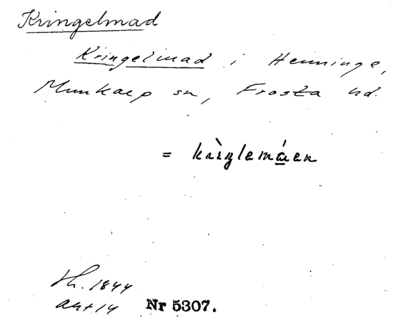 Kringelmad
Kringelmad i Henninge,
Munkarp sn, Frosta hd.
= kringlemáen
1844
akt 14 Nr 5307.